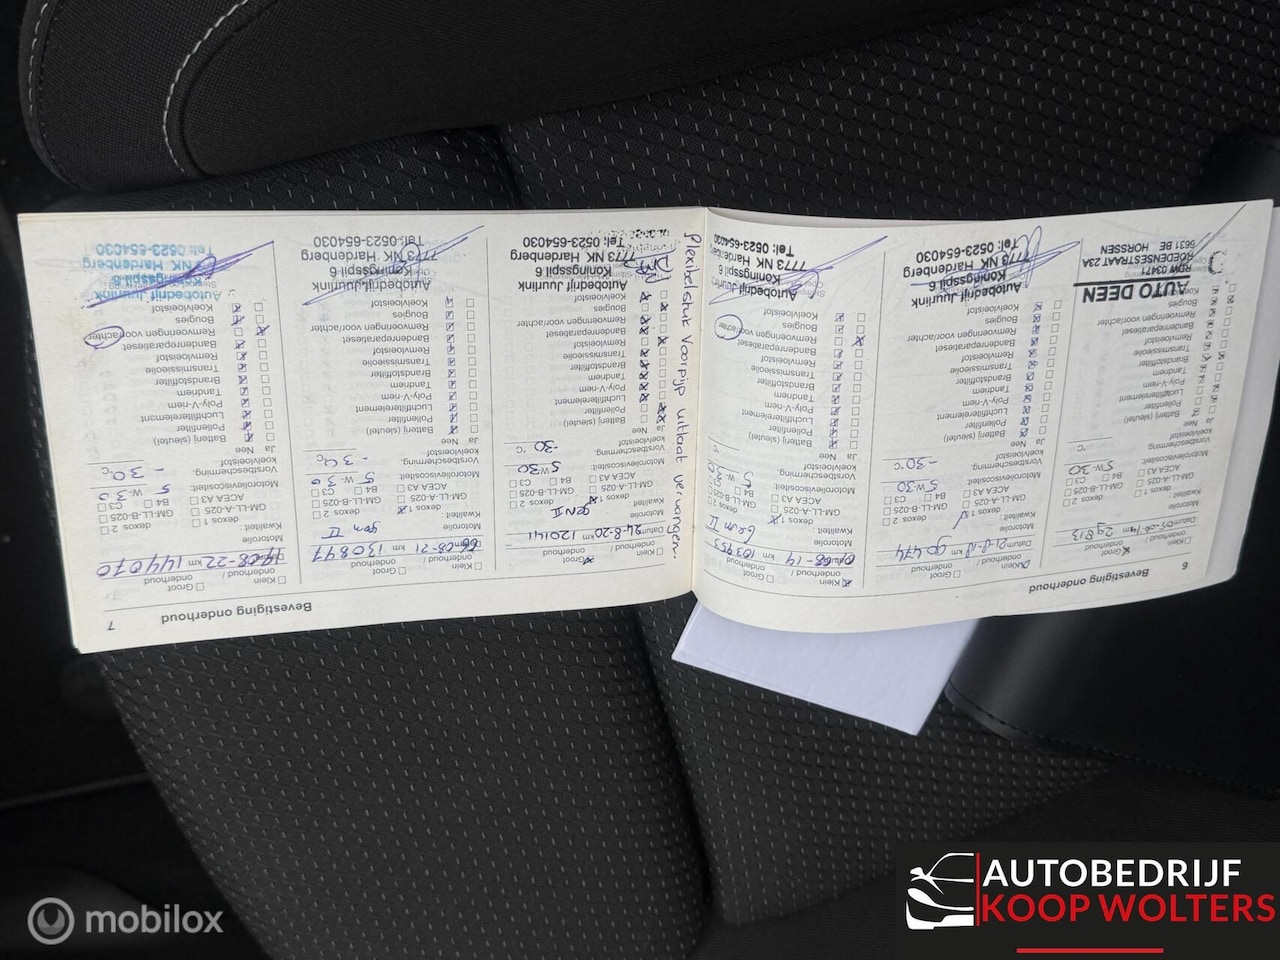 6
Bevestiging onderhoud
Klein onderhoud / Groot onderhoud
Datum 05-06-14 km 29813
Motorolie
Kwaliteit
dexos 1 dexos 2
GM-LL-A-025 GM-LL-B-025
ACEA A3 B4 C3
Motorolieviscositeit: 5W30
Vorstbescherming koelvloeistof °C
Ja Nee
Batterij (sleutel)
Pollenfilter
Luchtfilterelement
Poly-V-riem
Tandriem
Brandstoffilter
Transmissieolie
Remvloeistof
Bandenreparatieset
Remvoeringen voor/achter
Bougies
AUTO DEEN
RDW 03471
6631 BE HORSSEN
Klein onderhoud / Groot onderhoud
Datum 21-8-18 km 90474
Motorolie
Kwaliteit
dexos 1 dexos 2
GM-LL-A-025 GM-LL-B-025
ACEA A3 B4 C3
Motorolieviscositeit: 5W30
Vorstbescherming koelvloeistof -30 °C
Ja Nee
Batterij (sleutel)
Pollenfilter
Luchtfilterelement
Poly-V-riem
Tandriem
Brandstoffilter
Transmissieolie
Remvloeistof
Bandenreparatieset
Remvoeringen voor/achter
Bougies
Koelvloeistof
Autobedrijf Juurlink
Koningsspil 6
7773 NK Hardenberg
Tel: 0523-654030
Klein onderhoud / Groot onderhoud
km 103953
Motorolie
Kwaliteit
dexos 1 dexos 2
GM-LL-A-025 GM-LL-B-025
ACEA A3 B4 C3
Motorolieviscositeit: 5W30
Vorstbescherming koelvloeistof
Ja Nee
Batterij (sleutel)
Pollenfilter
Luchtfilterelement
Poly-V-riem
Tandriem
Brandstoffilter
Transmissieolie
Remvloeistof
Bandenreparatieset
Remvoeringen voor/achter
Bougies
Koelvloeistof
Autobedrijf Juurlink
Koningsspil 6
7773 NK Hardenberg
Tel: 0523-654030
flexibelstuk voorpijp uitlaat vervangen.
7
Bevestiging onderhoud
Klein onderhoud / Groot onderhoud
Datum 24-8-20 km 120141
Motorolie
Kwaliteit gen II
dexos 1 dexos 2
GM-LL-A-025 GM-LL-B-025
ACEA A3 B4 C3
Motorolieviscositeit: 5W30
Vorstbescherming koelvloeistof -30 °C
Ja Nee
Batterij (sleutel)
Pollenfilter
Luchtfilterelement
Poly-V-riem
Tandriem
Brandstoffilter
Transmissieolie
Remvloeistof
Bandenreparatieset
Remvoeringen voor/achter
Bougies
Koelvloeistof
Autobedrijf Juurlink
Koningsspil 6
7773 NK Hardenberg
Tel: 0523-654030
Klein onderhoud / Groot onderhoud
08-21 km 130847
Motorolie
Kwaliteit gen II
dexos 1 dexos 2
GM-LL-A-025 GM-LL-B-025
ACEA A3 B4 C3
Motorolieviscositeit: 5W30
Vorstbescherming koelvloeistof
Ja Nee
Batterij (sleutel)
Pollenfilter
Luchtfilterelement
Poly-V-riem
Tandriem
Brandstoffilter
Transmissieolie
Remvloeistof
Bandenreparatieset
Remvoeringen voor/achter
Bougies
Koelvloeistof
Autobedrijf Juurlink
Koningsspil 6
7773 NK Hardenberg
Tel: 0523-654030
Klein onderhoud / Groot onderhoud
08-22 km 144070
Motorolie
Kwaliteit
dexos 1 dexos 2
GM-LL-A-025 GM-LL-B-025
ACEA A3 B4 C3
Motorolieviscositeit: 5W30
Vorstbescherming koelvloeistof -30 °C
Ja Nee
Batterij (sleutel)
Pollenfilter
Luchtfilterelement
Poly-V-riem
Tandriem
Brandstoffilter
Transmissieolie
Remvloeistof
Bandenreparatieset
Remvoeringen voor/achter
Bougies
Koelvloeistof
Autobedrijf Juurlink
Koningsspil 6
7773 NK Hardenberg
Tel: 0523-654030
mobilox
AUTOBEDRIJF
KOOP WOLTERS